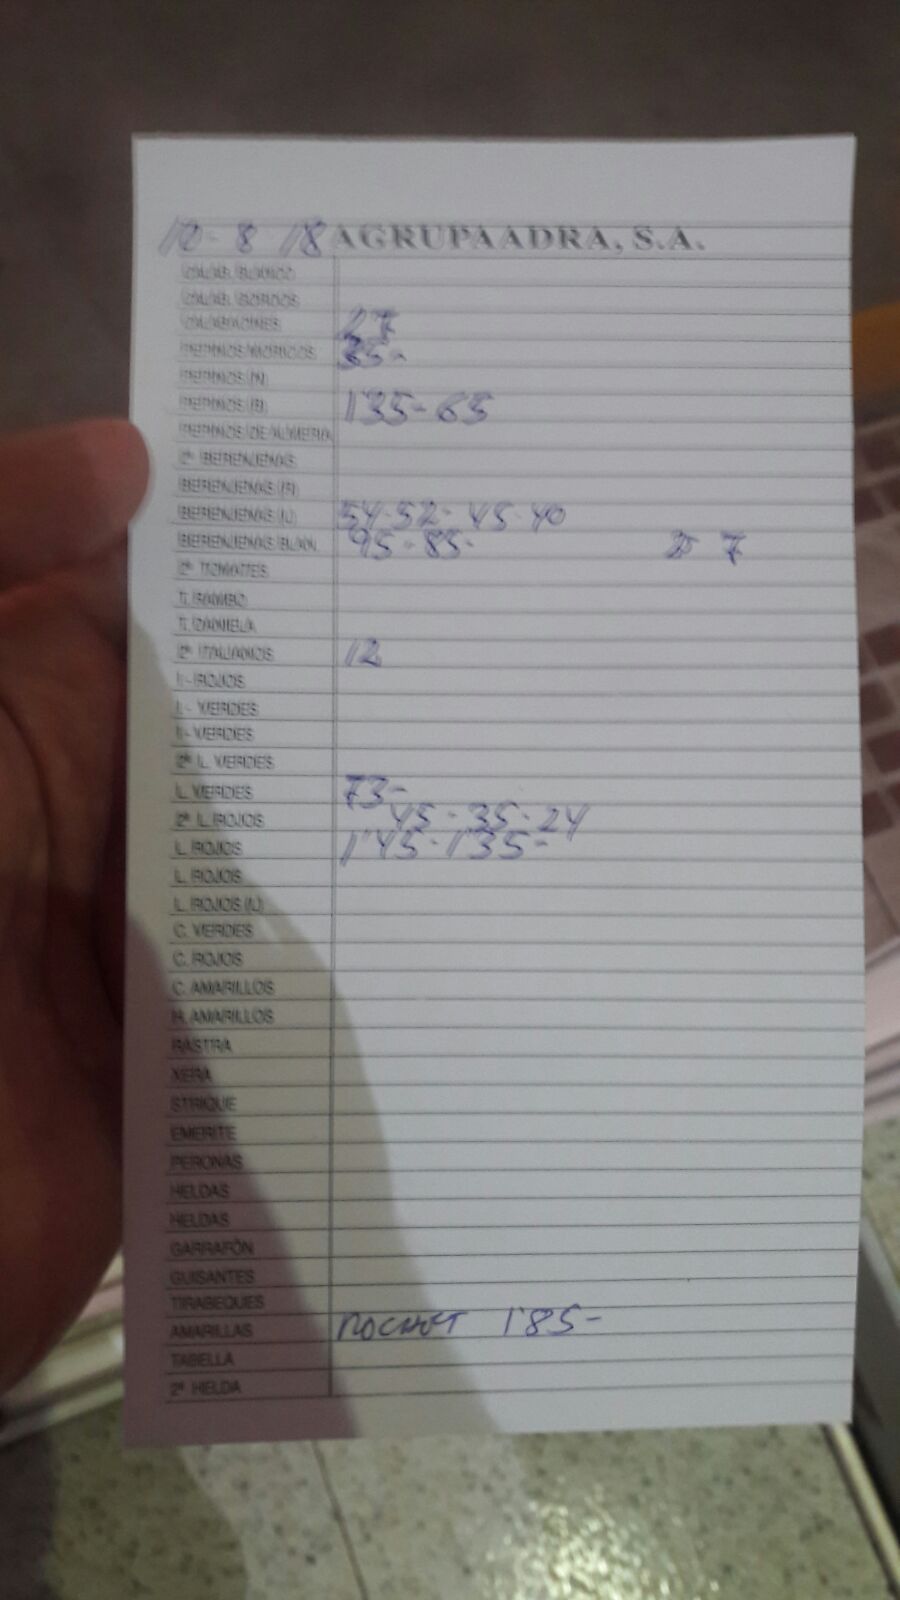 10-8 18 AGRUPAADRA, S.A.
CALAB. BLANCO
CALAB. GORDOS
CALABACINES 27
PEPINOS MORICOS 35-
PEPINOS (N)
PEPINOS (B) 1'35-65
PEPINOS DE ALMERIA
2ª BERENJENAS
BERENJENAS (R)
BERENJENAS (L) 54-52-45-40
BERENJENAS BLAN. 95-85- 7
2ª TOMATES
T. RAMBO
T. DANIELA
2ª ITALIANOS 12
I.- ROJOS
I.- VERDES
I.- VERDES
2ª L. VERDES
L. VERDES 73-
2ª L. ROJOS 45-35-24
L. ROJOS 1'45-1'35-
L. ROJOS
L. ROJOS (U)
C. VERDES
C. ROJOS
C. AMARILLOS
H. AMARILLOS
RASTRA
XERA
STRIQUE
EMERITE
PERONAS
HELDAS
HELDAS
GARRAFÓN
GUISANTES
TIRABEQUES
AMARILLAS 1'85-
TABELLA
2ª HELDA